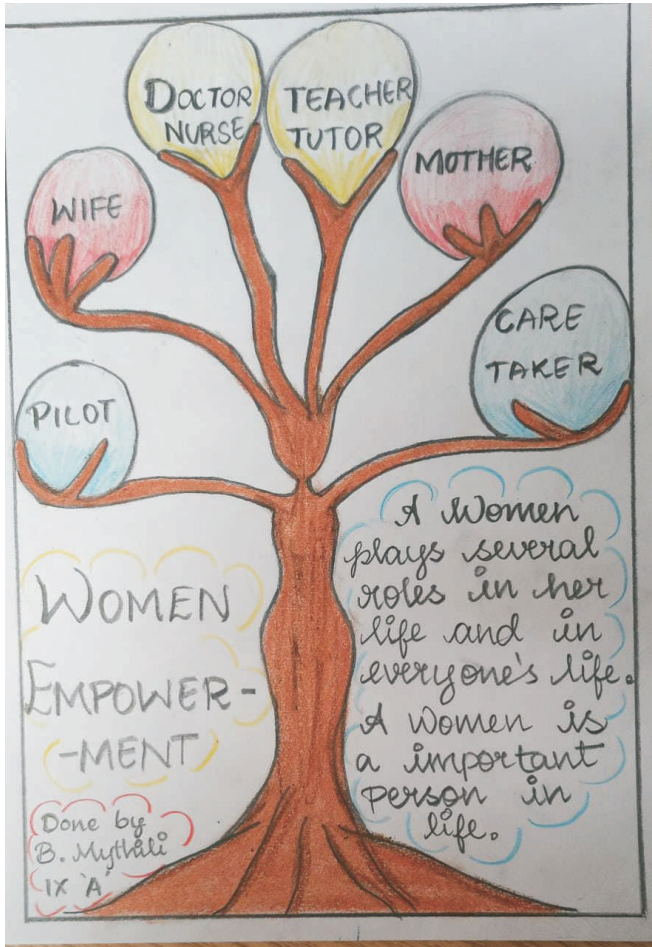 DOCTOR
NURSE
TEACHER
TUTOR
MOTHER
WIFE
CARE
TAKER
PILOT
WOMEN
EMPOWER-
-MENT
A Women
plays several
roles in her
life and in
everyone's life.
A women is
a important
person in
life.
Done by
B. Mythili
IX 'A'